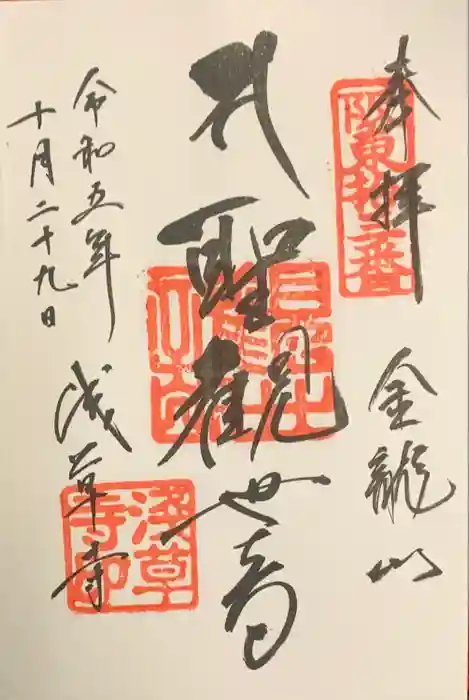 奉拝
金龍山
聖観世音
令和五年
十月二十九日
浅草寺
阪東拾三番
浅草
寺印